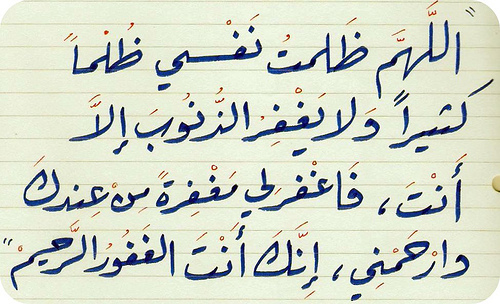 "اللَّهمَّ ظَلمتُ نَفْسي ظُلْماً
كثيراً وَلا يَغْفِرُ الذُّنُوبَ إلَّا
أَنْتَ، فَاغْفرلي مَغْفِرةً مِنْ عِندكَ
وارْحَمْني، إنَّكَ أَنْتَ الغَفُورُ الرَّحيمْ"